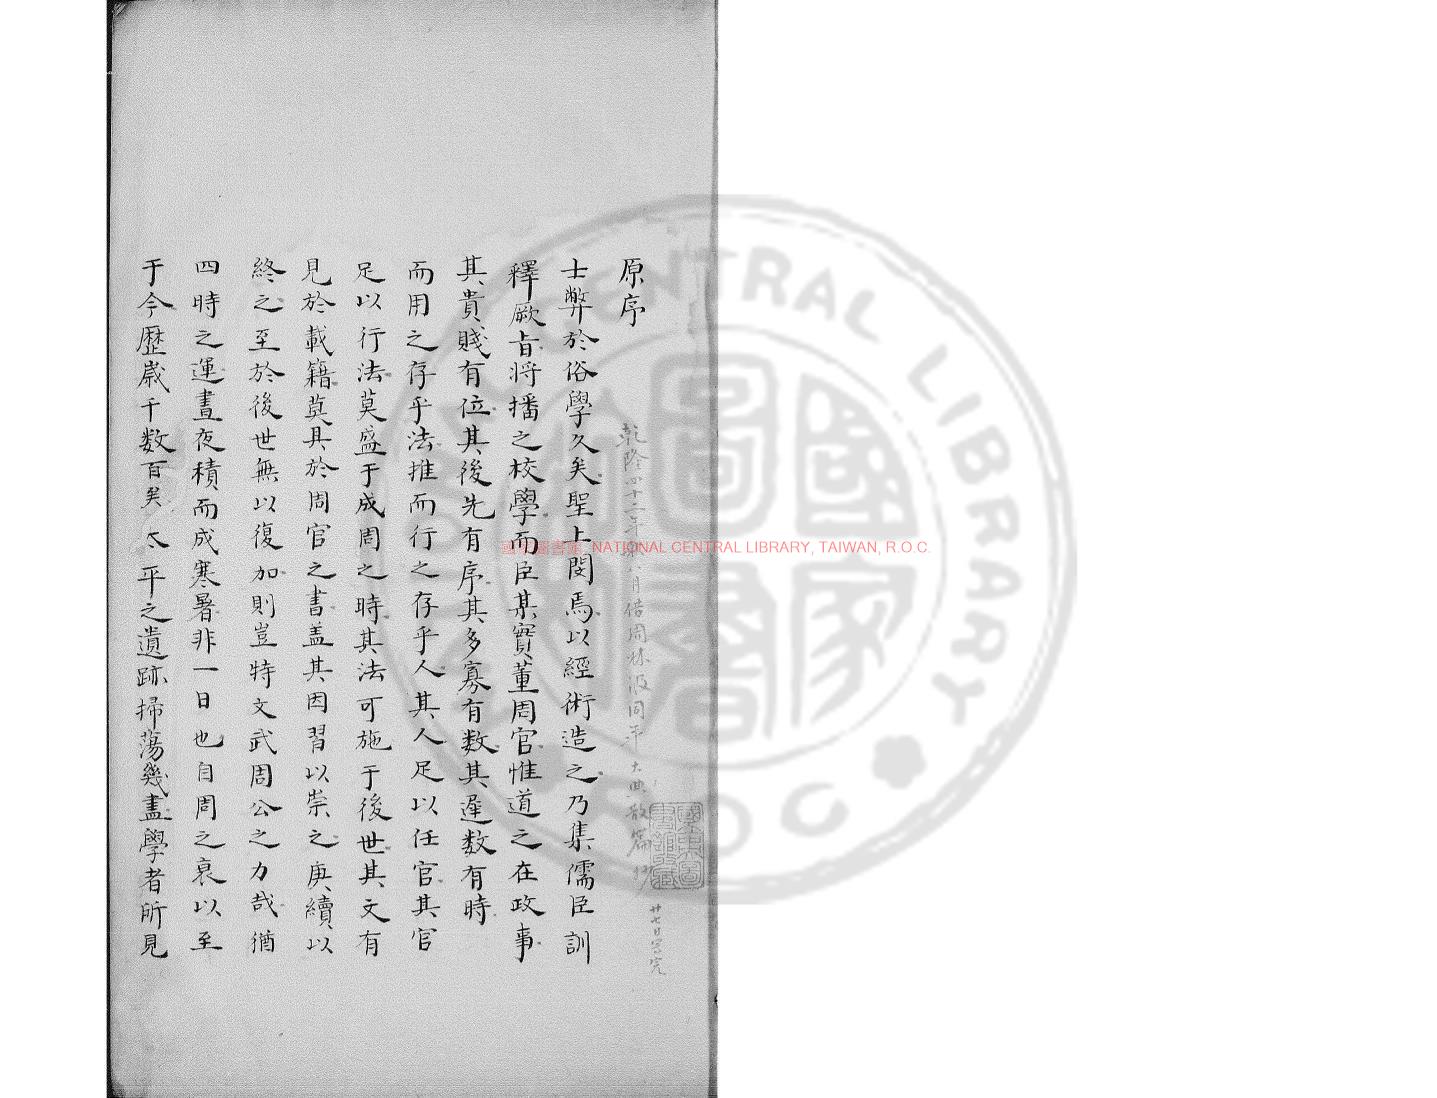 原序
乾隆四十二年 八月借周林汲同年大典散篇抄
廿七日寫完
士弊於俗學久矣聖上閔焉以經術造之乃集儒臣訓
釋厥旨將播之校學而臣某實董周官惟道之在政事
其貴賤有位其後先有序其多寡有数其遲数有時
而用之存乎法推而行之存乎人其人足以任官其官
足以行法莫盛于成周之時其法可施于後世其文有
見於載籍莫具於周官之書盖其因習以崇之庚續以
終之至於後世無以復加則豈特文武周公之力哉猶
四時之運晝夜積而成寒暑非一日也自周之衰以至
于今歷歲千数百矣太平之遺跡掃蕩幾盡學者所見
國家圖書館, NATIONAL CENTRAL LIBRARY, TAIWAN, R.O.C.
NATIONAL CENTRAL LIBRARY
ROC
國家圖書